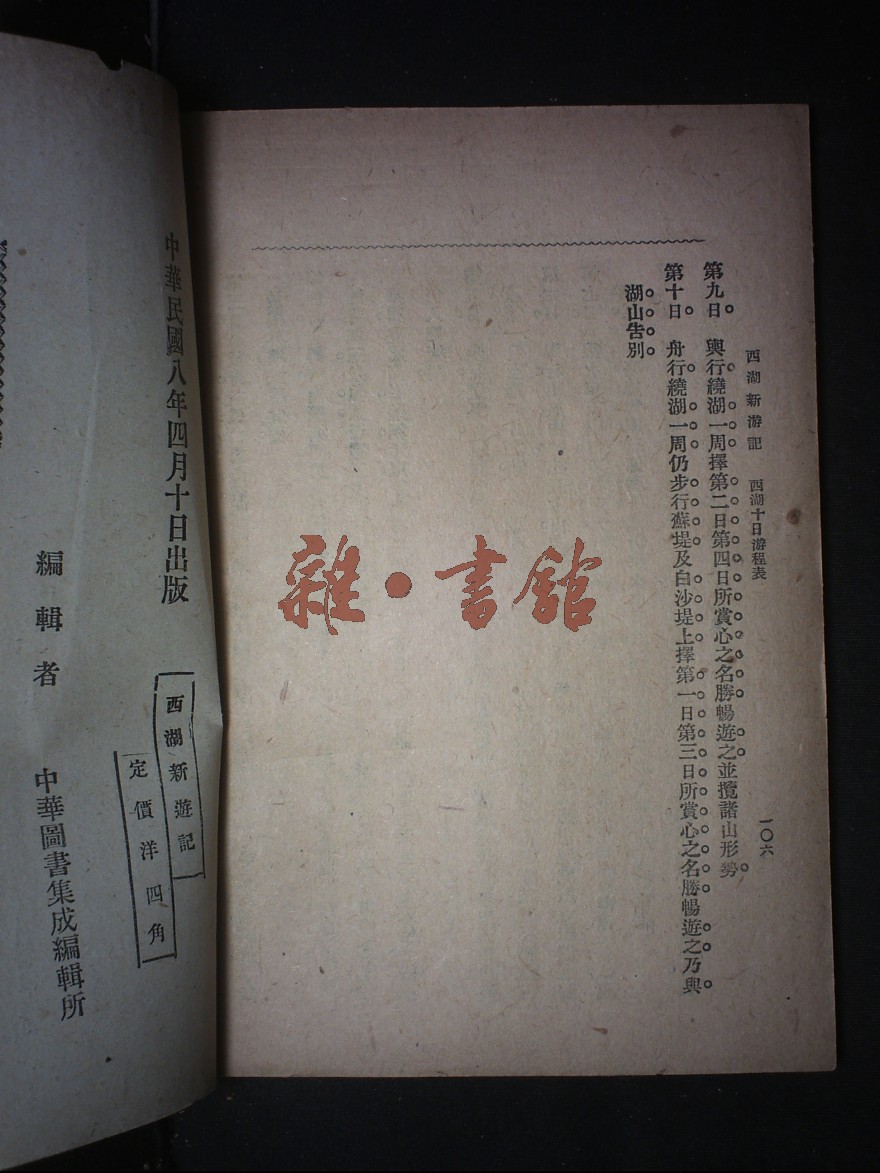 西湖新游記 西湖十日游程表 一〇六
第九日 輿行繞湖一周擇第二日第四日所賞心之名勝暢遊之並攬諸山形勢
第十日 舟行繞湖一周仍步行蘇堤及白沙堤上擇第一日第三日所賞心之名勝暢遊之乃與
湖山告別
雜·書館
中華民國八年四月十日出版
西湖新遊記
定價洋四角
編輯者 中華圖書集成編輯所